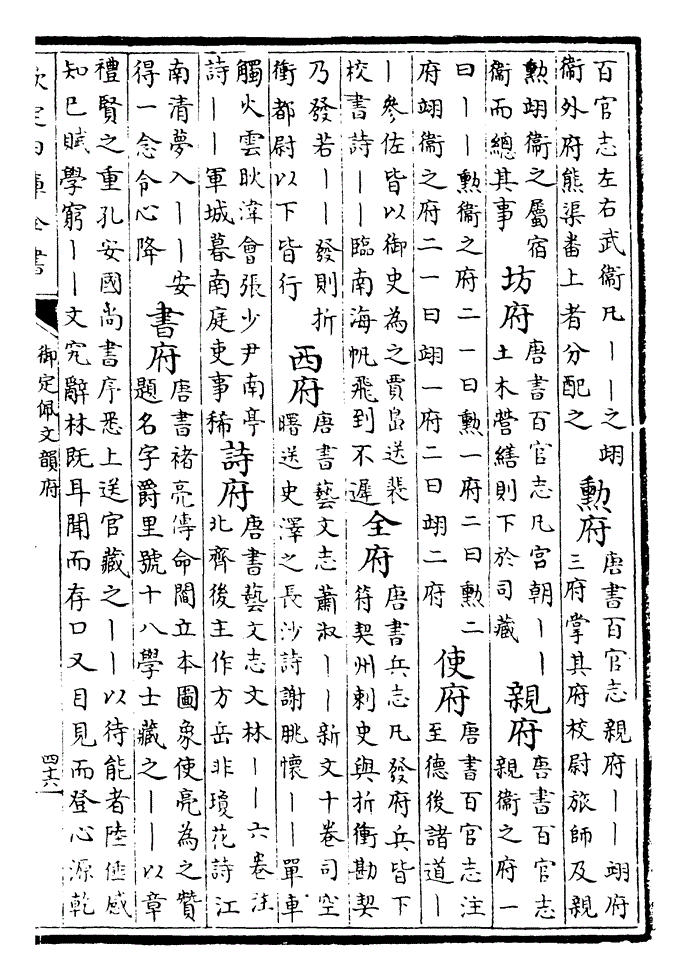 百官志左右武衞凡丨丨之翊
衞外府熊渠番上者分配之
勲府
唐書百官志親府丨丨翊府
三府掌其府校尉旅師及親
勲翊衞之屬宿
衞而總其事
坊府
唐書百官志凡宮朝丨丨
土木營繕則下於司藏
親府
唐書百官志
親衞之府一
曰丨丨勲衞之府二一曰勲一府二曰勲二
府翊衞之府二一曰翊一府二曰翊二府
使府
唐書百官志注
至德後諸道丨
丨參佐皆以御史為之賈島送裴
校書詩丨丨臨南海帆飛到不遲
全府
唐書兵志凡發府兵皆下
符契州剌史與折衝勘契
乃發若丨丨發則折
衝都尉以下皆行
西府
唐書藝文志蕭淑丨丨新文十卷司空
曙送史澤之長沙詩謝朓懷丨丨單車
觸火雲耿湋會張少尹南亭
詩丨丨軍城暮南庭吏事稀
詩府
唐書藝文志文林丨丨六卷注
北齊後主作方岳非瓊花詩江
南清夢入丨丨安
得一念令心降
書府
唐書褚亮傳命閻立本圖象使亮為之贊
題名字爵里號十八學士藏之丨丨以章
禮賢之重孔安國尚書序悉上送官藏之丨丨以待能者陸倕感
知已賦學窮丨丨文究辭林既耳聞而存口又目見而登心源乾
欽定四庫全書
御定佩文韻府
四十六